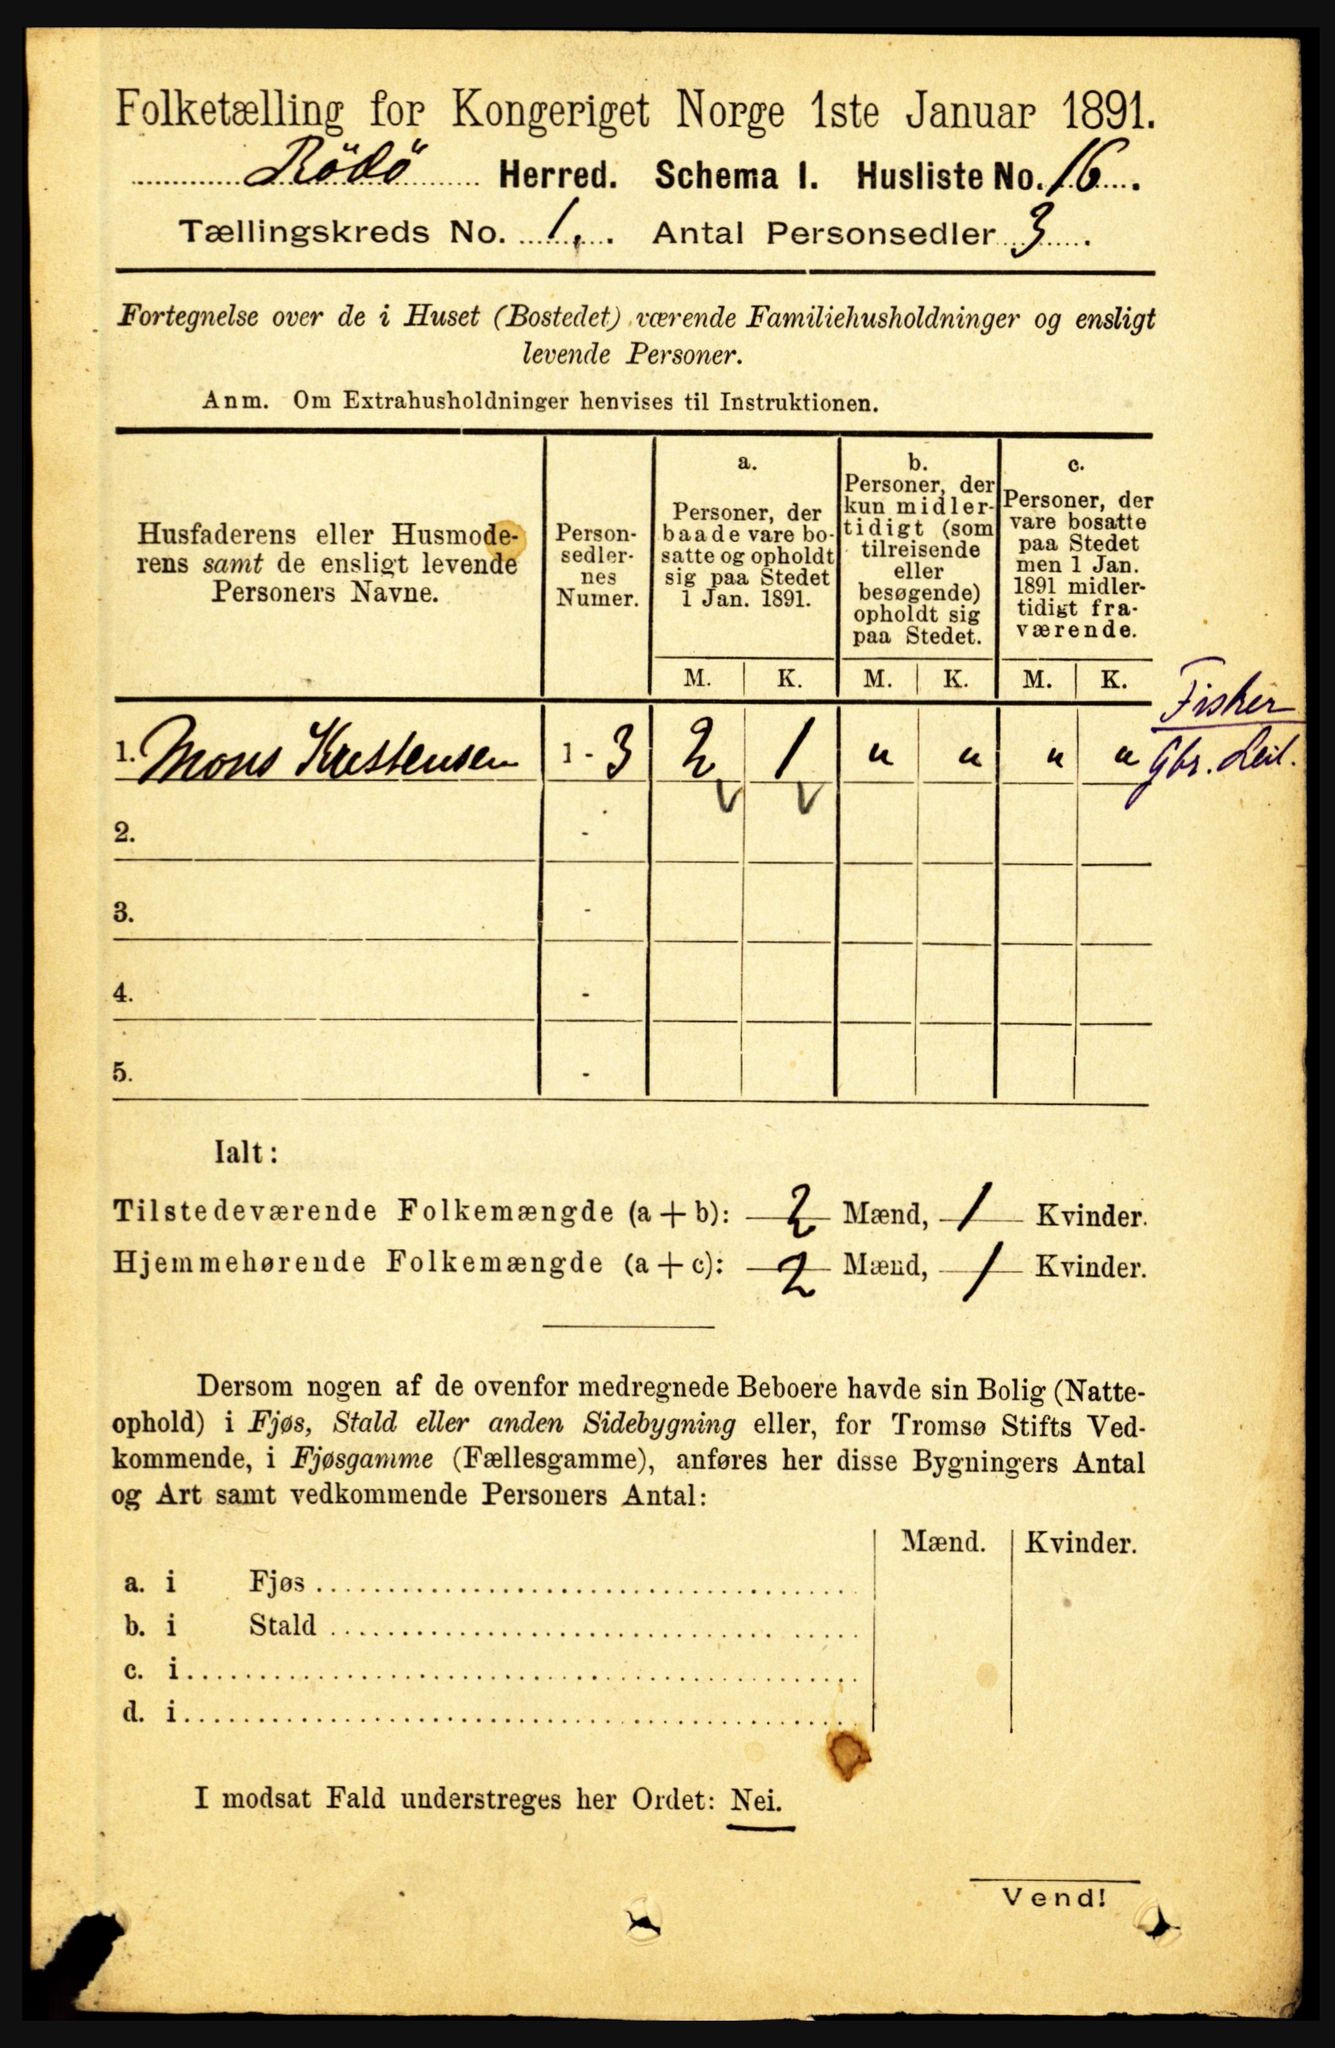 Folketælling for Kongeriget Norge 1ste Januar 1891.
Rödö Herred. Schema I. Husliste No. 16.
Tællingskreds No. 1. Antal Personsedler 3.
Fortegnelse over de i Huset (Bostedet) værende Familiehusholdninger og ensligt
levende Personer.
Anm. Om Extrahusholdninger henvises til Instruktionen.
Husfaderens eller Husmode-
rens samt de ensligt levende
Personers Navne.
Person-
sedler-
nes
Numer.
a.
Personer, der
baade vare bo-
satte og opholdt
sig paa Stedet
1 Jan. 1891.
b.
Personer, der
kun midler-
tidigt (som
tilreisende
eller
besøgende)
opholdt sig
paa Stedet.
c.
Personer, der
vare bosatte
paa Stedet
men 1 Jan.
1891 midler-
tidigt fra-
værende.
M. K. M. K. M. K.
Fisker
1. Mons Kristensen 1 - 3 2 1 " " " " Gbr. Leil.
2. -
3. -
4. -
5. -
Ialt:
Tilstedeværende Folkemængde (a + b): 2 Mænd, 1 Kvinder.
Hjemmehørende Folkemængde (a + c): 2 Mænd, 1 Kvinder.
Dersom nogen af de ovenfor medregnede Beboere havde sin Bolig (Natte-
ophold) i Fjøs, Stald eller anden Sidebygning eller, for Tromsø Stifts Ved-
kommende, i Fjøsgamme (Fællesgamme), anføres her disse Bygningers Antal
og Art samt vedkommende Personers Antal:
Mænd. Kvinder.
a. i Fjøs
b. i Stald
c. i
d. i
I modsat Fald understreges her Ordet: Nei.
Vend!